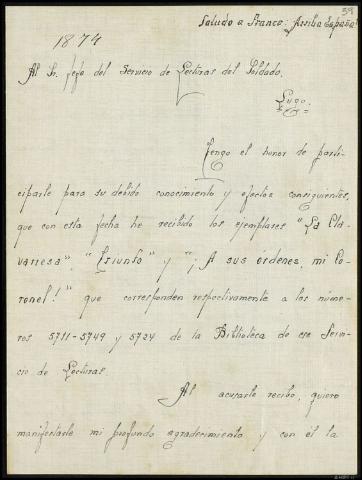 39
Saludo a Franco: ¡Arriba España!
1874
Al Sr. Jefe del Servicio de Lecturas del Soldado.
Lugo.
Tengo el honor de parti-
ciparle para su debido conocimiento y efectos consiguientes,
que con esta fecha he recibido los ejemplares "La Cla-
varresa", "Triunfo" y "¡A sus órdenes, mi Co-
ronel!" que corresponden respectivamente a los núme-
ros 5711-5749 y 5724 de la Biblioteca de ese Servi-
cio de Lecturas.
Al acusarle recibo, quiero
manifestarle mi profundo agradecimiento y con él la